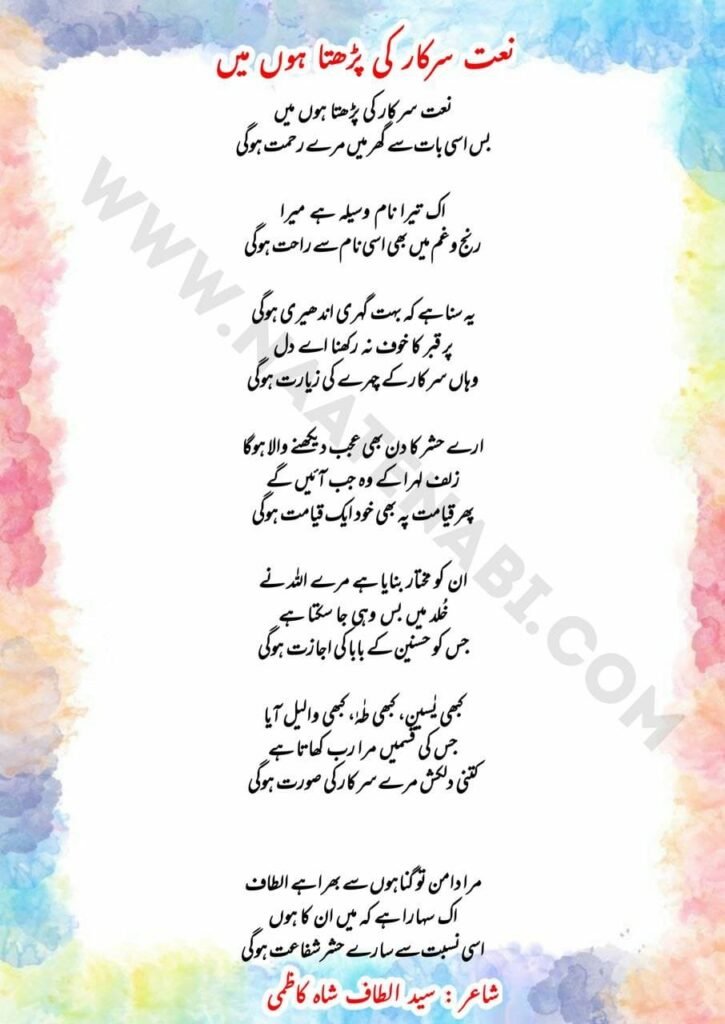 نعت سرکار کی پڑھتا ہوں میں
نعت سرکار کی پڑھتا ہوں میں
بس اسی بات سے گھر میں مرے رحمت ہوگی
اک تیرا نام وسیلہ ہے میرا
رنج و غم میں بھی اسی نام سے راحت ہوگی
یہ سنا ہے کہ بہت گہری اندھیری ہوگی
پر قبر کا خوف نہ رکھنا اے دل
وہاں سرکار کے چہرے کی زیارت ہوگی
ارے حشر کا دن بھی عجب دیکھنے والا ہوگا
زلف لہرا کے وہ جب آئیں گے
پھر قیامت پہ بھی خود ایک قیامت ہوگی
ان کو مختار بنایا ہے مرے اللہ نے
خُلد میں بس وہی جا سکتا ہے
جس کو حسنین کے بابا کی اجازت ہوگی
کبھی یٰسین، کبھی طہٰ، کبھی والیل آیا
جس کی قسمیں مرا رب کھاتا ہے
کتنی دلکش مرے سرکار کی صورت ہوگی
مرا دامن تو گناہوں سے بھرا ہے الطاف
اک سہارا ہے کہ میں ان کا ہوں
اسی نسبت سے سارے حشر شفاعت ہوگی
شاعر : سید الطاف شاہ کاظمی
WWW.NAATENABI.COM